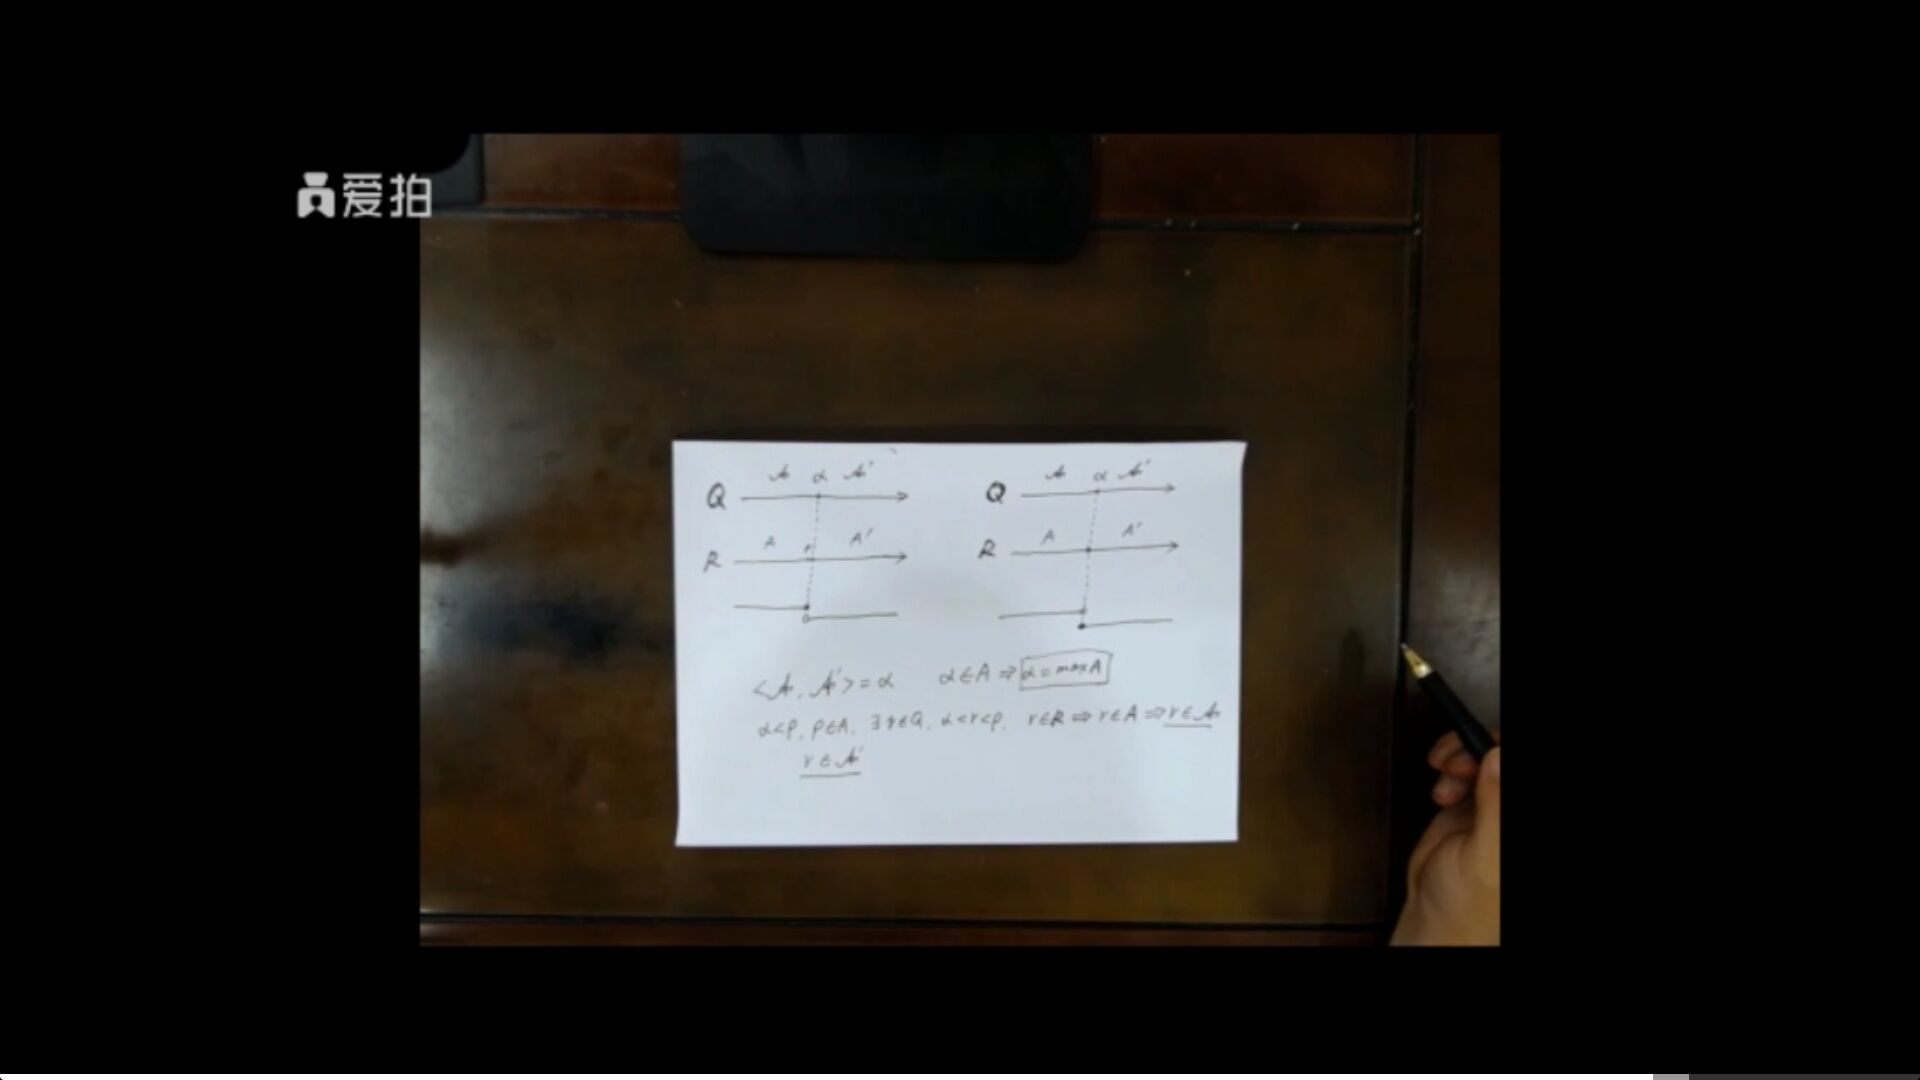 爱拍
𝒜 α 𝒜′
Q
A r A′
R
𝒜 α 𝒜′
Q
A A′
R
<𝒜, 𝒜′> = α α∈A ⇒ α = max A
α<ρ, ρ∈A, ∃r∈Q, α<r<ρ, r∈R ⇒ r∈A ⇒ r∈𝒜
r∈𝒜′